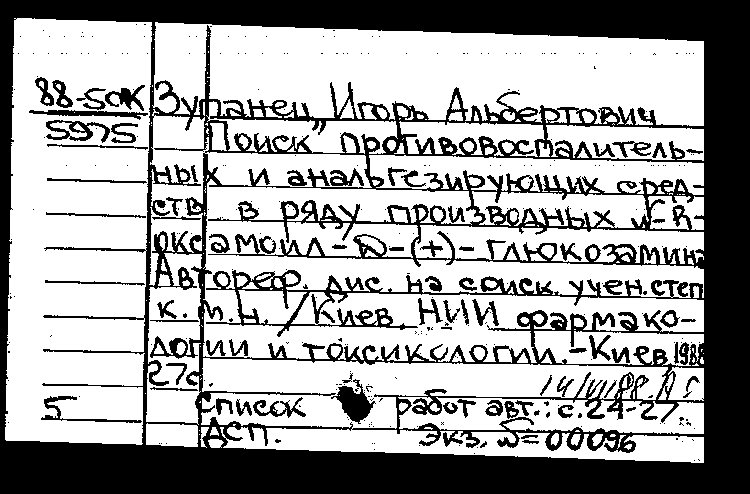 88-50К Зупанец, Игорь Альбертович
5975 Поиск противовоспалитель-
ных и анальгезирующих сред-
ств в ряду производных N-R-
оксамоил-D-(+)-глюкозамина
Автореф. дис. на соиск. учен. степ
к.м.н. /Киев. НИИ фармако-
логии и токсикологии.-Киев, 1988
27с.
5 Список работ авт.: с.24-27.
ДСП. Экз. №=00096